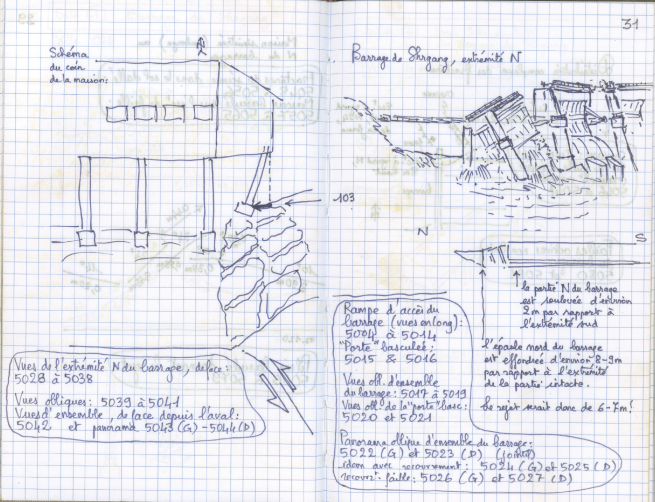 Schéma
du coin
de la maison:
103
Vues de l'extrémité N du barrage, de face:
5028 à 5038
Vues obliques: 5039 à 5041
Vues d'ensemble, de face depuis l'aval:
5042 et panorama 5043 (G) - 5044 (D)
31
Barrage de Shigang, extrémité N
N
S
la partie N du barrage
est soulevée d'environ
2m par rapport à
l'extrémité sud
l'épaule nord du barrage
est effondrée d'environ 8-9m
par rapport à l'extrémité
de la partie intacte.
Le rejet serait donc de 6-7m!
Rampe d'accès du
barrage (vues en long):
5004 à 5014
"Porte" basculée:
5015 & 5016
Vues obl. d'ensemble
du barrage: 5017 à 5019
Vues obl. de la "porte" basc:
5020 et 5021
Panorama oblique d'ensemble du barrage:
5022 (G) et 5023 (D)
idem avec recouvrement: 5024 (G) et 5025 (D)
recouvrt faille: 5026 (G) et 5027 (D)